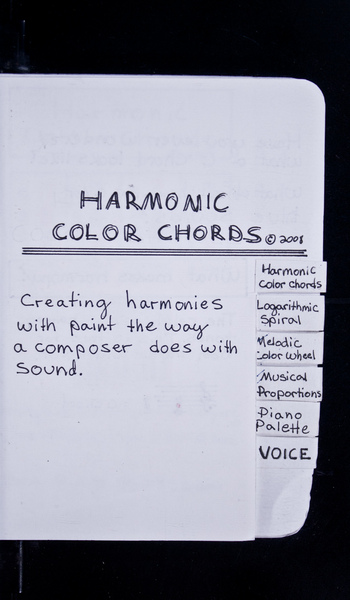 HARMONIC
COLOR CHORDS © 2008
Creating harmonies
with paint the way
a composer does with
sound.
Harmonic
Color chords
Logarithmic
Spiral
Melodic
Color Wheel
Musical
Proportions
Piano
Palette
VOICE